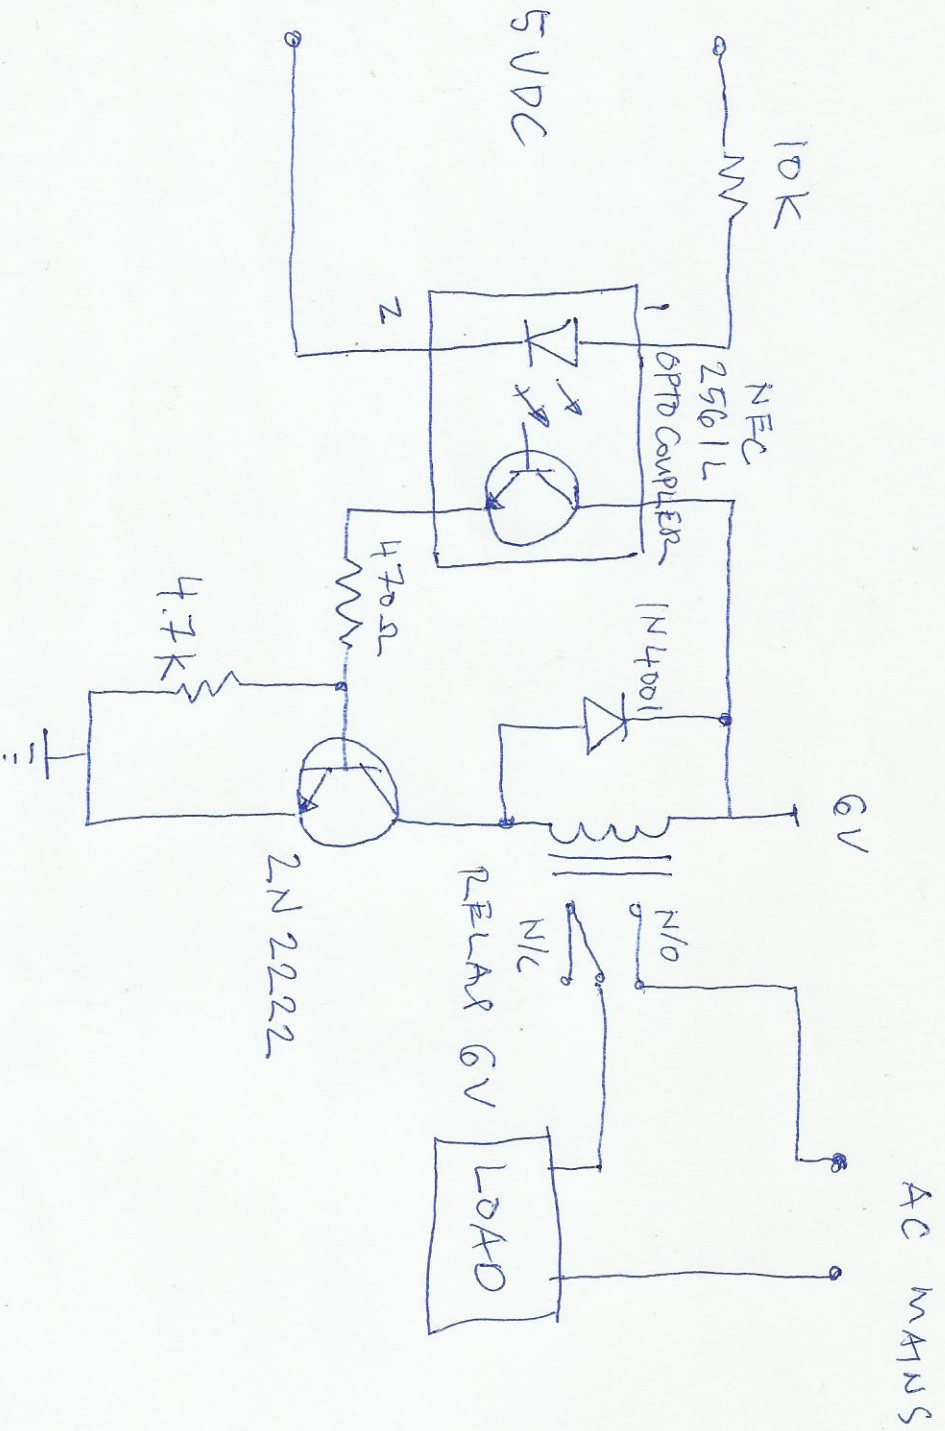 10K
5VDC
NEC
2561L
OPTOCOUPLER
1
2
470Ω
4.7K
1N4001
6V
2N2222
RELAY 6V
N/O
N/C
LOAD
AC MAINS